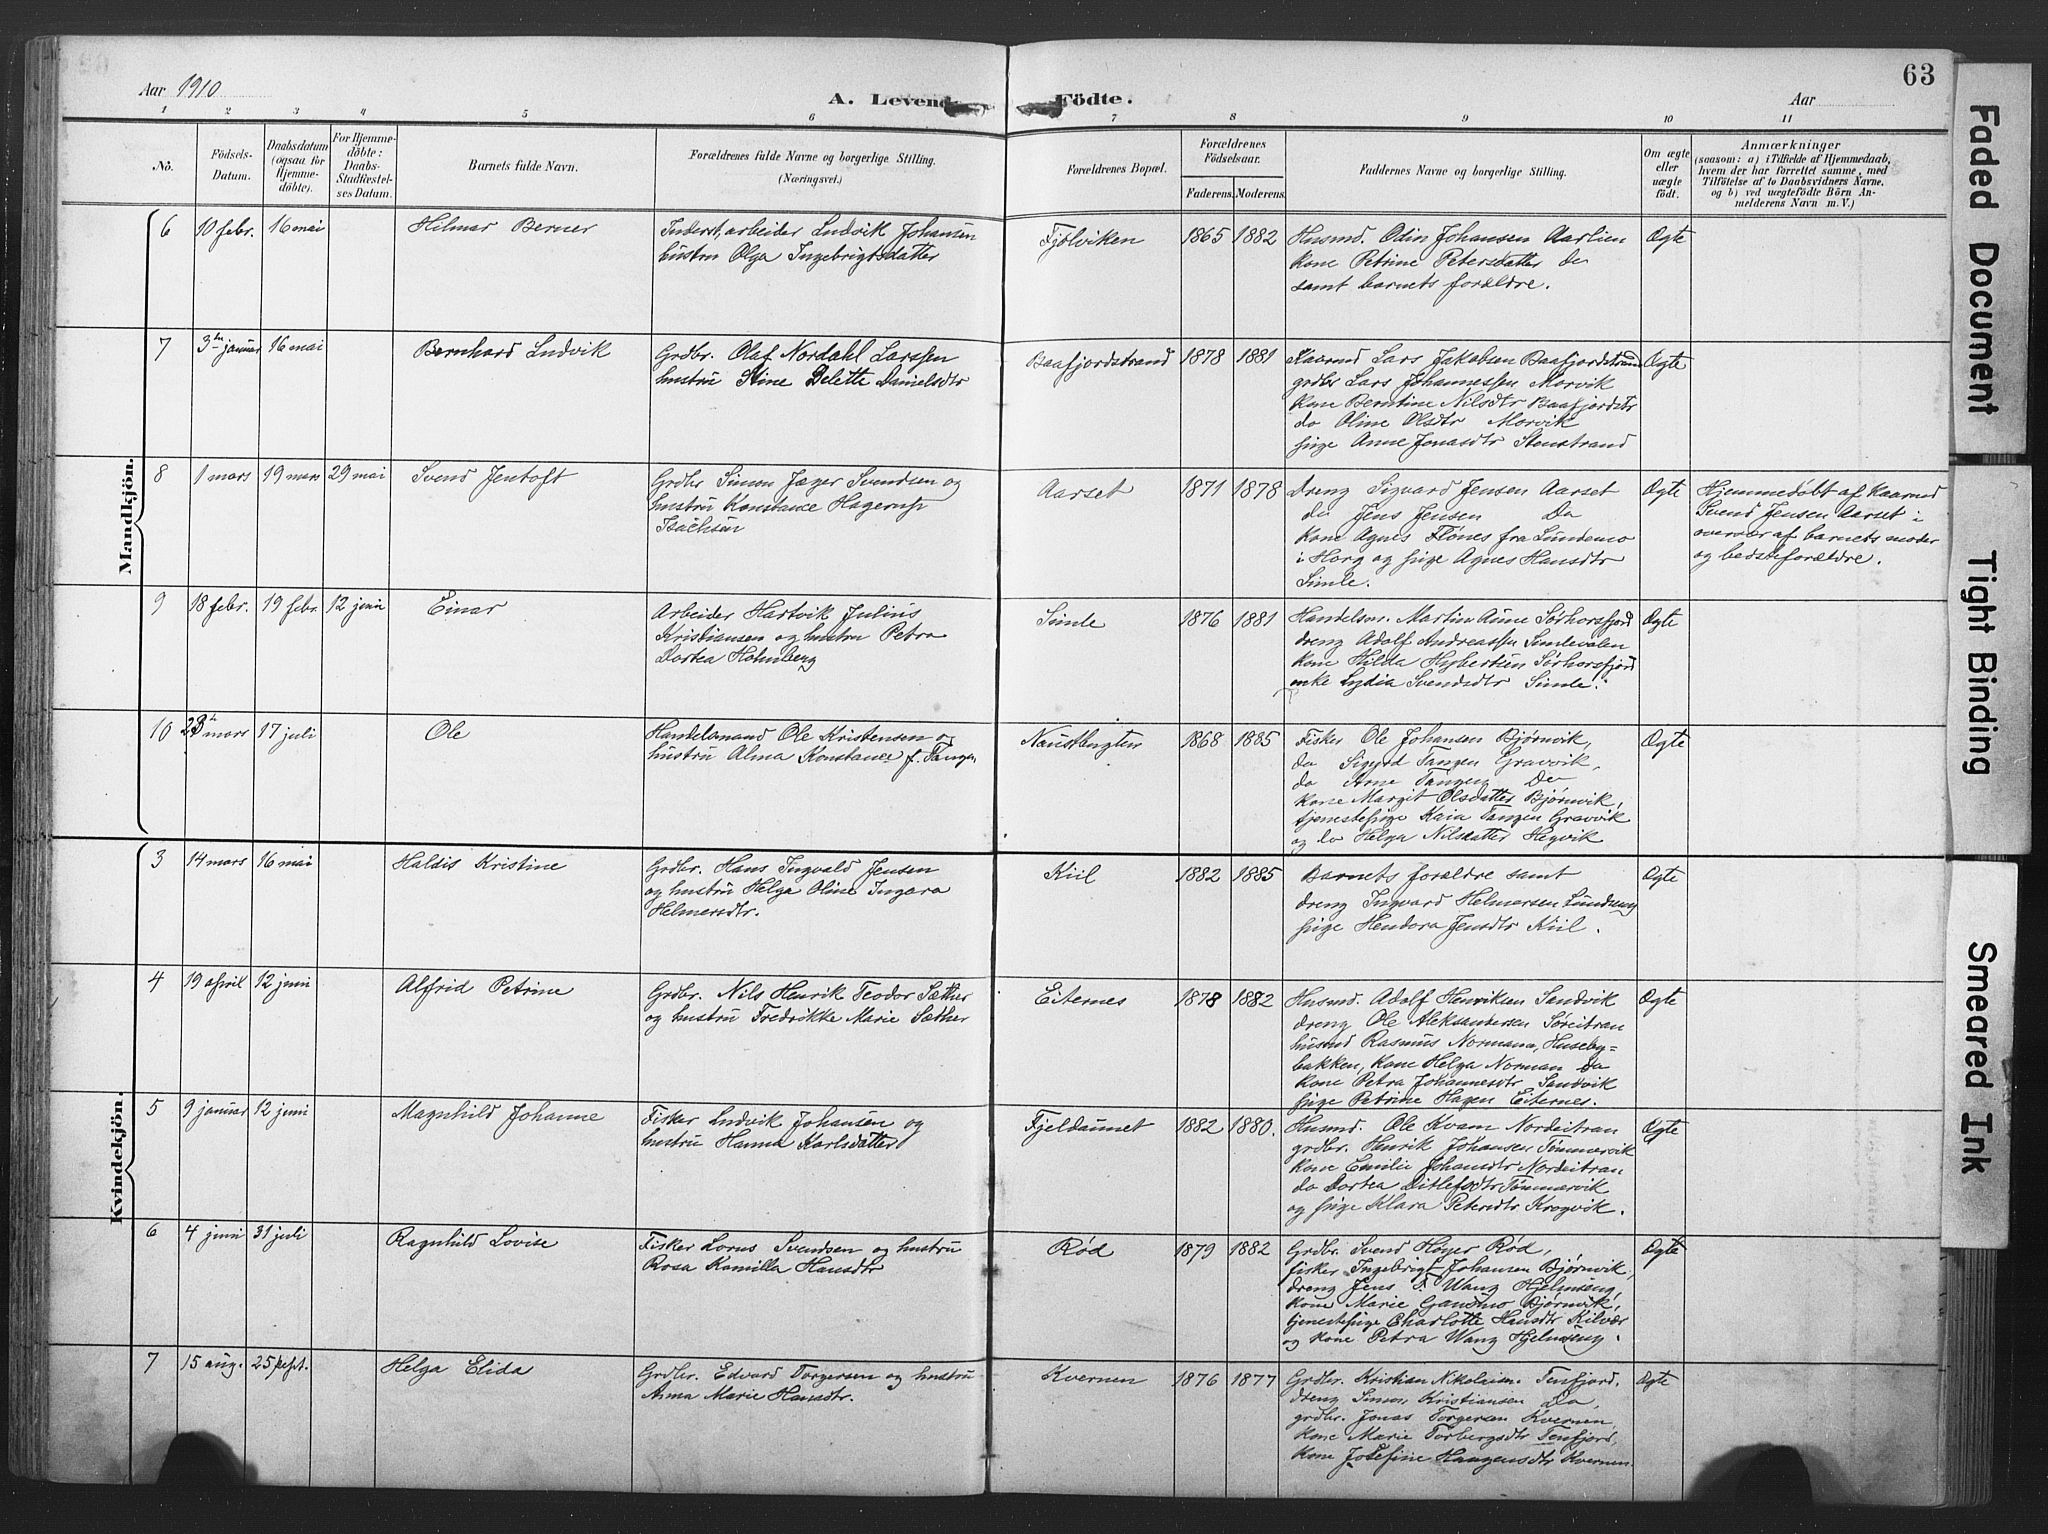 63
Aar 1910
A. Levend
Födte.
Aar
1 2 3 4 5 6 7 8 9 10 11
No.
Födsels-
Datum.
Daabsdatum
(ogsaa for
Hjemme-
döbte).
For Hjemme-
döbte:
Daabs-
Stadfæstel-
ses Datum.
Barnets fulde Navn.
Forældrenes fulde Navne og borgerlige Stilling.
(Næringsvei.)
Forældrenes Bopæl.
Forældrenes
Födselsaar.
Faderens. Moderens.
Faddernes Navne og borgerlige Stilling.
Om ægte
eller
uægte
födt.
Anmærkninger
(saasom: a) i Tilfælde af Hjemmedaab,
hvem der har forrettet samme, med
Tilföielse af to Daabsvidners Navne,
og b) ved uægtefödte Börn An-
melderens Navn m. V.)
Mandkjön.
6 10 febr. 16 mai Hilmar Berner
Inderst, arbeider Ludvik Johansen
hustru Olga Ingebrigtsdatter
Fjølviken 1865 1882
Husmd. Odin Johansen Aarlien
kone Petrine Petersdatter do
samt barnets forældre.
Ægte
7 3die januar 16 mai Bernhard Ludvik
Grdbr. Olaf Nordahl Larssen
hustru Stine Delette Danielsdtr
Baafjordstrand 1878 1881
Kaarmd Lars Jakobsen Baafjordstrand
grdbr Lars Johannessen Morvik
kone Berntine Nilsdtr Baafjordstr
do Oline Olsdtr Morvik
pige Anne Jonasdtr Stenstrand
Ægte
8 1 mars 19 mars 29 mai Svend Jentoft
Grdbr Simon Jæger Svendsen og
hustru Konstance Hagerup
Isachsen
Aarset 1871 1878
Dreng Sigvard Jensen Aarset
do Jens Jensen Do
kone Agnes Flönes fra Lundemo
i Horg og pige Agnes Hansdtr
Simle.
Ægte
Hjemmedøbt af Kaarmd
Svend Jensen Aarset i
overvær af barnets moder
og bedsteforældre.
9 18 febr. 19 febr. 12 juni Einar
Arbeider Hartvik Julius
Kristiansen og hustru Petra
Dortea Holmberg
Simle 1876 1881
Handelsm. Martin Aune Sørhorsfjord
dreng Adolf Andreassen Simlevalen
kone Hilda Hybertsen Sørhorsfjord
enke Lydia Svendsdtr Simle.
Ægte
10 28 mars 17 juli Ole
Handelsmand Ole Kristensen og
hustru Alma Konstance f. Tangen
Naustbugten 1868 1885
Fisker Ole Johansen Bjørnvik,
do Sigurd Tangen Gravvik,
do Arne Tangen Do
kone Margit Olsdatter Bjørnvik,
tjenestepige Kaia Tangen Gravvik
og do Helga Nilsdatter Hegvik
Ægte
Kvindekjön.
3 14 mars 16 mai Haldis Kristine
Grdbr. Hans Ingvald Jensen
og hustru Helga Oline Ingara
Helmersdtr.
Kiil 1882 1885
Barnets forældre samt
dreng Ingvard Helmersen Lundseng
pige Hendora Jensdtr Kiil.
Ægte
4 19 april 12 juni Alfrid Petrine
Grdbr. Nils Henrik Teodor Sæther
og hustru Fredrikke Marie Sæther
Eiternes 1878 1882
Husmd. Adolf Henriksen Sandvik
dreng Ole Aleksandersen Søreitran
husmd Rasmus Normann, Huseby-
bakken, kone Helga Norman Do
kone Petra Johannesdtr Sandvik
pige Petrine Hagen Eiternes.
Ægte
5 9 januar 12 juni Magnhild Johanne
Fisker Ludvik Johansen og
hustru Hanna Karlsdatter
Fjeldaunet 1882 1880.
Husmd. Ole Kvam Nordeitran
grdbr. Henrik Johansen Tømmervik
kone Emilie Johansdtr Nordeitran
do Dortea Ditlefsdtr Tømmervik
og pige Klara Petersdtr Krogvik.
Ægte
6 4 juni 31 juli Ragnhild Lovise
Fisker Lorns Svendsen og hustru
Rosa Kamilla Hansdtr
Rød 1879 1882
Grdbr. Svend Høyer Rød,
fisker Ingebrigt Johansen Bjørnvik,
dreng Jens F. Wang Hjelmseng,
kone Marie Gansmo Bjørnvik,
tjenestepige Charlotte Hansdtr Kilvær
og kone Petra Wang Hjelmseng.
Ægte
7 15 aug. 25 sept. Helga Elida
Grdbr. Edvard Torgersen og hustru
Anna Marie Hansdtr.
Kvernen 1876 1877
Grdbr. Kristian Nikolaisen Tenfjord.
dreng Simon Kristiansen Do,
grdbr. Jonas Torgersen Kvernen,
kone Marie Torbergsdtr Tenfjord,
kone Josefine Haagensdtr Kvernen.
Ægte
Faded Document
Tight Binding
Smeared Ink